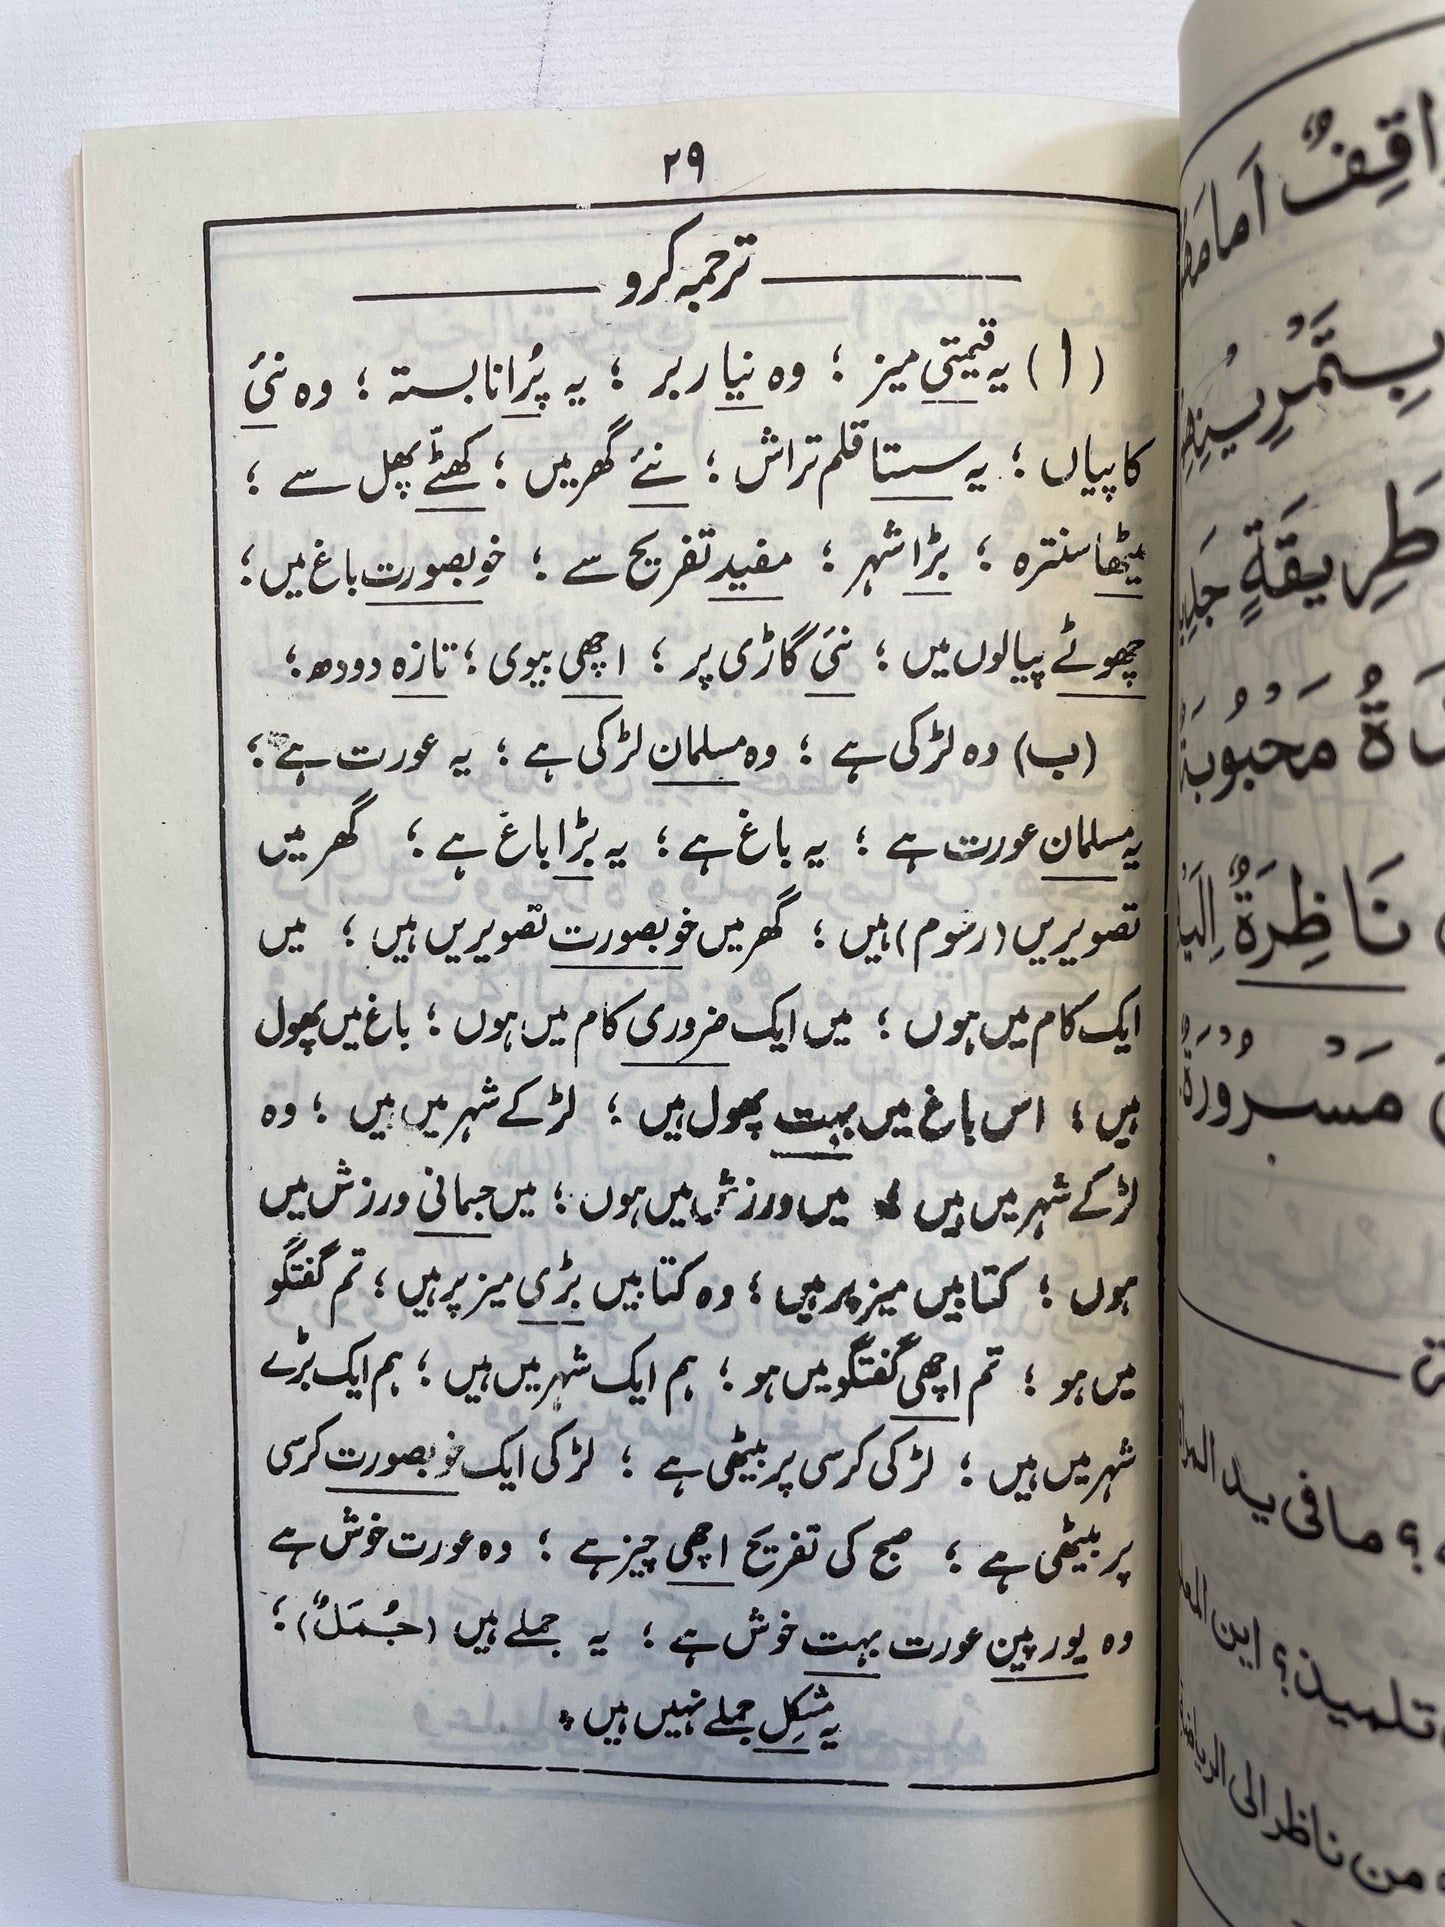 ۲۹
ترجمہ کرو
(ا) یہ قیمتی میز ؛ وہ نیا ربر ؛ یہ پُرانا بستہ ؛ وہ نئی
کاپیاں ؛ یہ سستا قلم تراش ؛ نئے گھر میں ؛ کھٹّے پھل سے ؛
میٹھا سنترہ ؛ بڑا شہر ؛ مفید تفریح سے ؛ خوبصورت باغ میں ؛
چھوٹے پیالوں میں ؛ نئی گاڑی پر ؛ اچھی بیوی ؛ تازہ دودھ ؛
(ب) وہ لڑکی ہے ؛ وہ مسلمان لڑکی ہے ؛ یہ عورت ہے ؛
یہ مسلمان عورت ہے ؛ یہ باغ ہے ؛ یہ بڑا باغ ہے ؛ گھر میں
تصویریں (رسوم) ہیں ؛ گھر میں خوبصورت تصویریں ہیں ؛ میں
ایک کام میں ہوں ؛ میں ایک ضروری کام میں ہوں ؛ باغ میں پھول
ہیں ؛ اس باغ میں بہت پھول ہیں ؛ لڑکے شہر میں ہیں ؛ وہ
لڑکے شہر میں ہیں ؛ میں ورزش میں ہوں ؛ میں جسمانی ورزش میں
ہوں ؛ کتابیں میز پر ہیں ؛ وہ کتابیں بڑی میز پر ہیں ؛ تم گفتگو
میں ہو ؛ تم اچھی گفتگو میں ہو ؛ ہم ایک شہر میں ہیں ؛ ہم ایک بڑے
شہر میں ہیں ؛ لڑکی کرسی پر بیٹھی ہے ؛ لڑکی ایک خوبصورت کرسی
پر بیٹھی ہے ؛ صبح کی تفریح اچھی چیز ہے ؛ وہ عورت خوش ہے
وہ یورپین عورت بہت خوش ہے ؛ یہ جملے ہیں (جُمَلٌ) ؛
یہ مشکِل جملے نہیں ہیں ٭
طَرِيقَةٍ
مَحْبُوبَةٌ
نَاظِرَةٌ
مَسْرُورَةٌ
؟ ما فی ید
تلمیذ؟ این
من ناظر الی